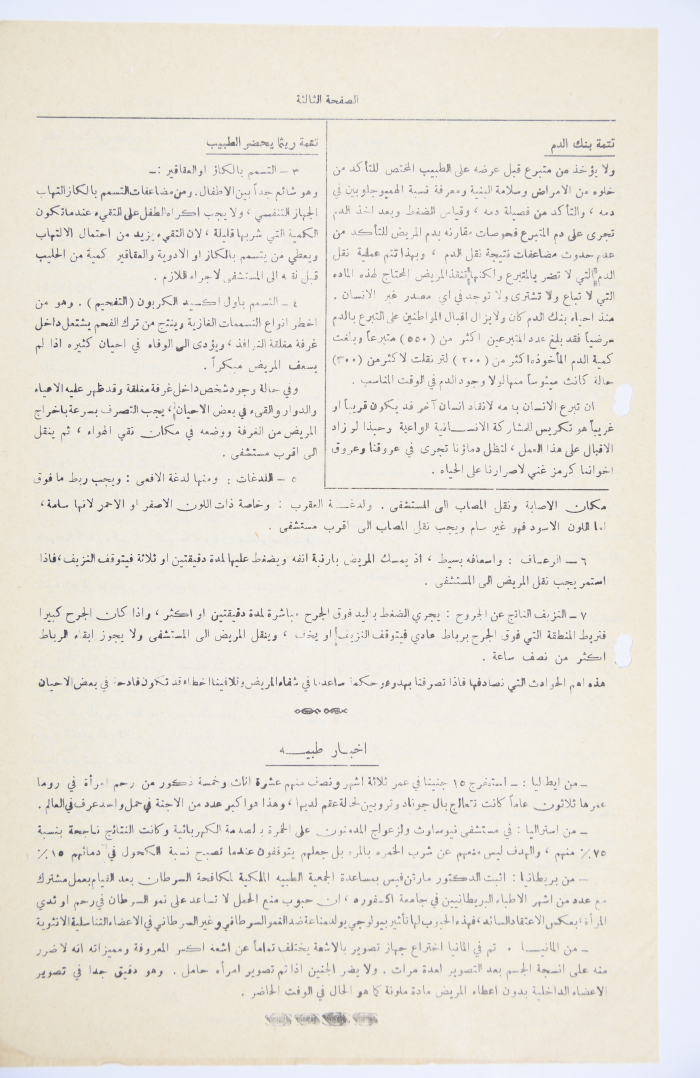 الصفحة الثالثة
تتمة بنك الدم
ولا يؤخذ من متبرع قبل عرضه على الطبيب المختص للتأكد من
خلوه من الامراض وسلامة البنية ومعرفة نسبة الهيموجلوبين في
دمه ، والتأكد من فصيلة دمه ، وقياس الضغط وبعد اخذ الدم
تجرى على دم المتبرع فحوصات مقارنه بدم المريض للتأكد من
عدم حدوث مضاعفات نتيجة نقل الدم ، وبهذا تتم عملية نقل
الدم التي لا تضر بالمتبرع ولكنها تنقذ المريض المحتاج لهذه الماده
التي لا تباع ولا تشترى ولا توجد في اي مصدر غير الانسان .
منذ احياء بنك الدم كان ولا يزال اقبال المواطنين على التبرع بالدم
مرضياً فقد بلغ عدد المتبرعين اكثر من (٥٥٠) متبرعاً وبلغت
كمية الدم المأخوذه اكثر من (٢٠٠) لتر نقلت لاكثر من (٣٠٠)
حالة كانت ميئوساً منها لولا وجود الدم في الوقت المناسب .
ان تبرع الانسان بدمه لانقاذ انسان آخر قد يكون قريباً او
غريباً هو تكريس للمشاركة الانسانية الواعية وحبذا لو زاد
الاقبال على هذا العمل ، لتظل دماؤنا تجرى في عروقنا وعروق
اخواننا كرمز غني لاصرارنا على الحياه .
تتمة ريثما يحضر الطبيب
٣ – التسمم بالكاز او العقاقير :–
وهو شائع جداً بين الاطفال . ومن مضاعفات التسمم بالكاز التهاب
الجهاز التنفسي ، ولا يجب اكراه الطفل على التقيء عندما تكون
الكمية التي شربها قليلة ، لان التقيء يزيد من احتمال الالتهاب
ويعطى من يتسمم بالكاز او الادوية والعقاقير كمية من الحليب
قبل نقله الى المستشفى لاجراء اللازم .
٤ – التسمم باول اكسيد الكربون ( التفحيم ) . وهو من
اخطر انواع التسممات الغازية وينتج من ترك الفحم يشتعل داخل
غرفة مغلقة النوافذ ، ويؤدى الى الوفاه في احيان كثيره اذا لم
يسعف المريض مبكراً .
وفي حالة وجود شخص داخل غرفة مغلقة وقد ظهر عليه الاعياء
والدوار والقيء في بعض الاحيان ، يجب التصرف بسرعة باخراج
المريض من الغرفة ووضعه في مكان نقي الهواء ، ثم ينقل
الى اقرب مستشفى .
٥ – اللدغات : ومنها لدغة الافعى : ويجب ربط ما فوق
مكان الاصابة ونقل المصاب الى المستشفى . ولدغة العقرب : وخاصة ذات اللون الاصفر او الاحمر لانها سامة ،
اما اللون الاسود فهو غير سام ويجب نقل المصاب الى اقرب مستشفى .
٦ – الرعاف : واسعافه بسيط ، اذ يمسك المريض بارنبة انفه ويضغط عليها لمدة دقيقتين او ثلاثة فيتوقف النزيف ، فاذا
استمر يجب نقل المريض الى المستشفى .
٧ – النزيف الناتج عن الجروح : يجري الضغط باليد فوق الجرح مباشرة لمدة دقيقتين او اكثر ، واذا كان الجرح كبيرا
فتربط المنطقة التي فوق الجرح برباط عادي فيتوقف النزيف او يخف ، وينقل المريض الى المستشفى ولا يجوز ابقاء الرباط
اكثر من نصف ساعة .
هذه اهم الحوادث التي نصادفها فاذا تصرفنا بهدوء وحكمة ساعدنا في شفاء المريض وتلافينا اخطاء قد تكون فادحة في بعض الاحيان
اخبار طبيه
– من ايطاليا : – استخرج ١٥ جنينا في عمر ثلاثة اشهر ونصف منهم عشرة اناث وخمسة ذكور من رحم امرأة في روما
عمرها ثلاثون عاماً كانت تتعالج بال جونادوتروبين لحالة عقم لديها ، وهذا هو اكبر عدد من الاجنة في حمل واحد عرف في العالم .
– من استراليا : في مستشفى نيوساوث ولز عولج المدمنون على الخمرة بالصدمة الكهربائية وكانت النتائج ناجحة بنسبة
٧٥٪ منهم ، والهدف ليس منعهم عن شرب الخمره بالمره بل جعلهم يتوقفون عندما تصبح نسبة الكحول في دمائهم ١٥٪
– من بريطانيا : اثبت الدكتور مارتن فيس بمساعدة الجمعية الطبيه الملكية لمكافحة السرطان بعد القيام بعمل مشترك
مع عدد من اشهر الاطباء البريطانيين في جامعة اكسفورد ، ان حبوب منع الحمل لا تساعد على نمو السرطان في رحم او ثدي
المرأة ، بعكس الاعتقاد السائد ، فهذه الحبوب لها تأثير بيولوجي يولد مناعة ضد النمو السرطاني وغير السرطاني في الاعضاء التناسلية الانثوية
– من المانيا . تم في المانيا اختراع جهاز تصوير بالاشعة يختلف تماماً عن اشعه اكس المعروفة ومميزاته انه لا ضرر
منه على انسجة الجسم بعد التصوير لعدة مرات . ولا يضر الجنين اذا تم تصوير امرأه حامل . وهو دقيق جدا في تصوير
الاعضاء الداخلية بدون اعطاء المريض مادة ملونة كما هو الحال في الوقت الحاضر .